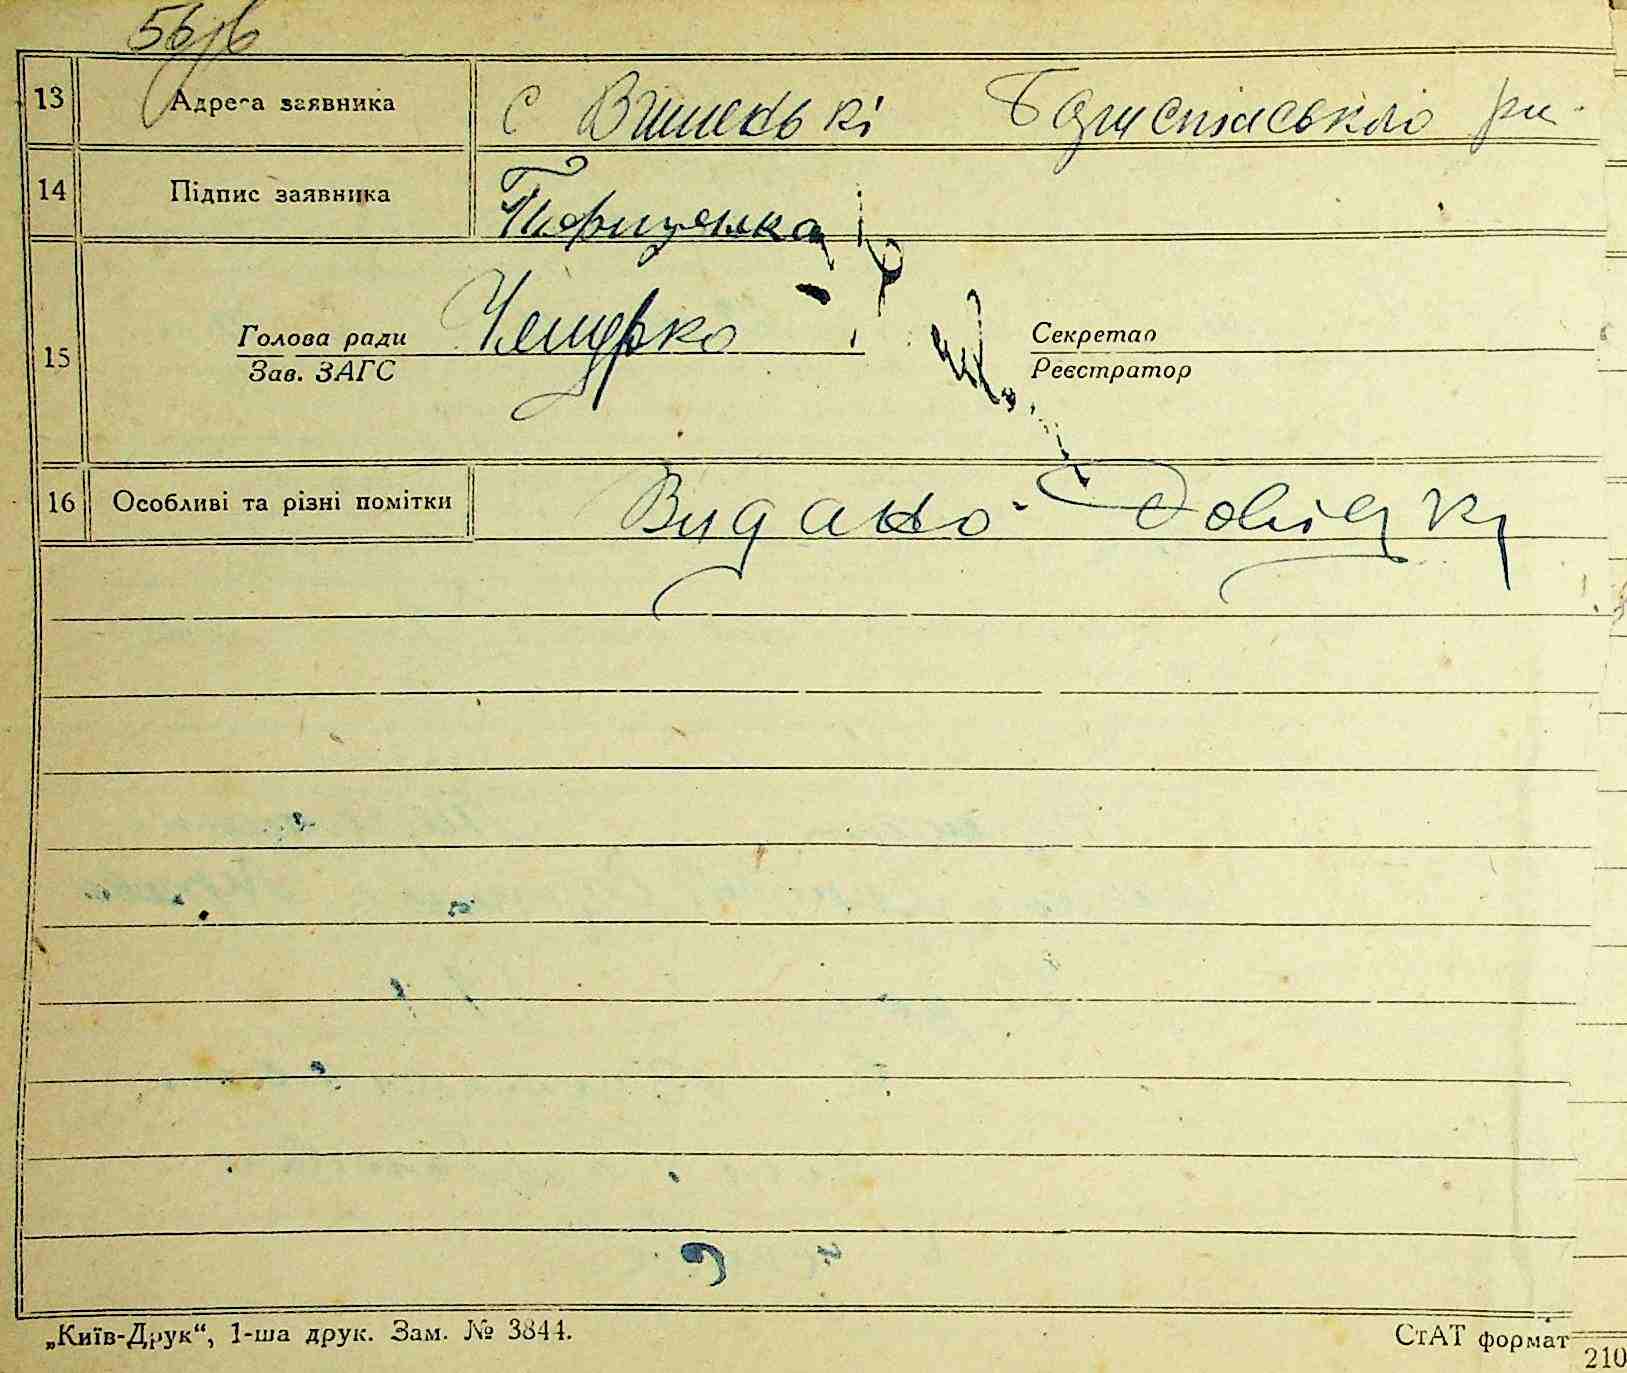 56/в
13 Адреса заявника с Вишеньки Бориспільського р-н
14 Підпис заявника
15 Голова ради Секретар
Зав. ЗАГС Реєстратор
16 Особливі та різні помітки Видано довідку
„Київ-Друк“, 1-ша друк. Зам. № 3844.
СтАТ формат
210